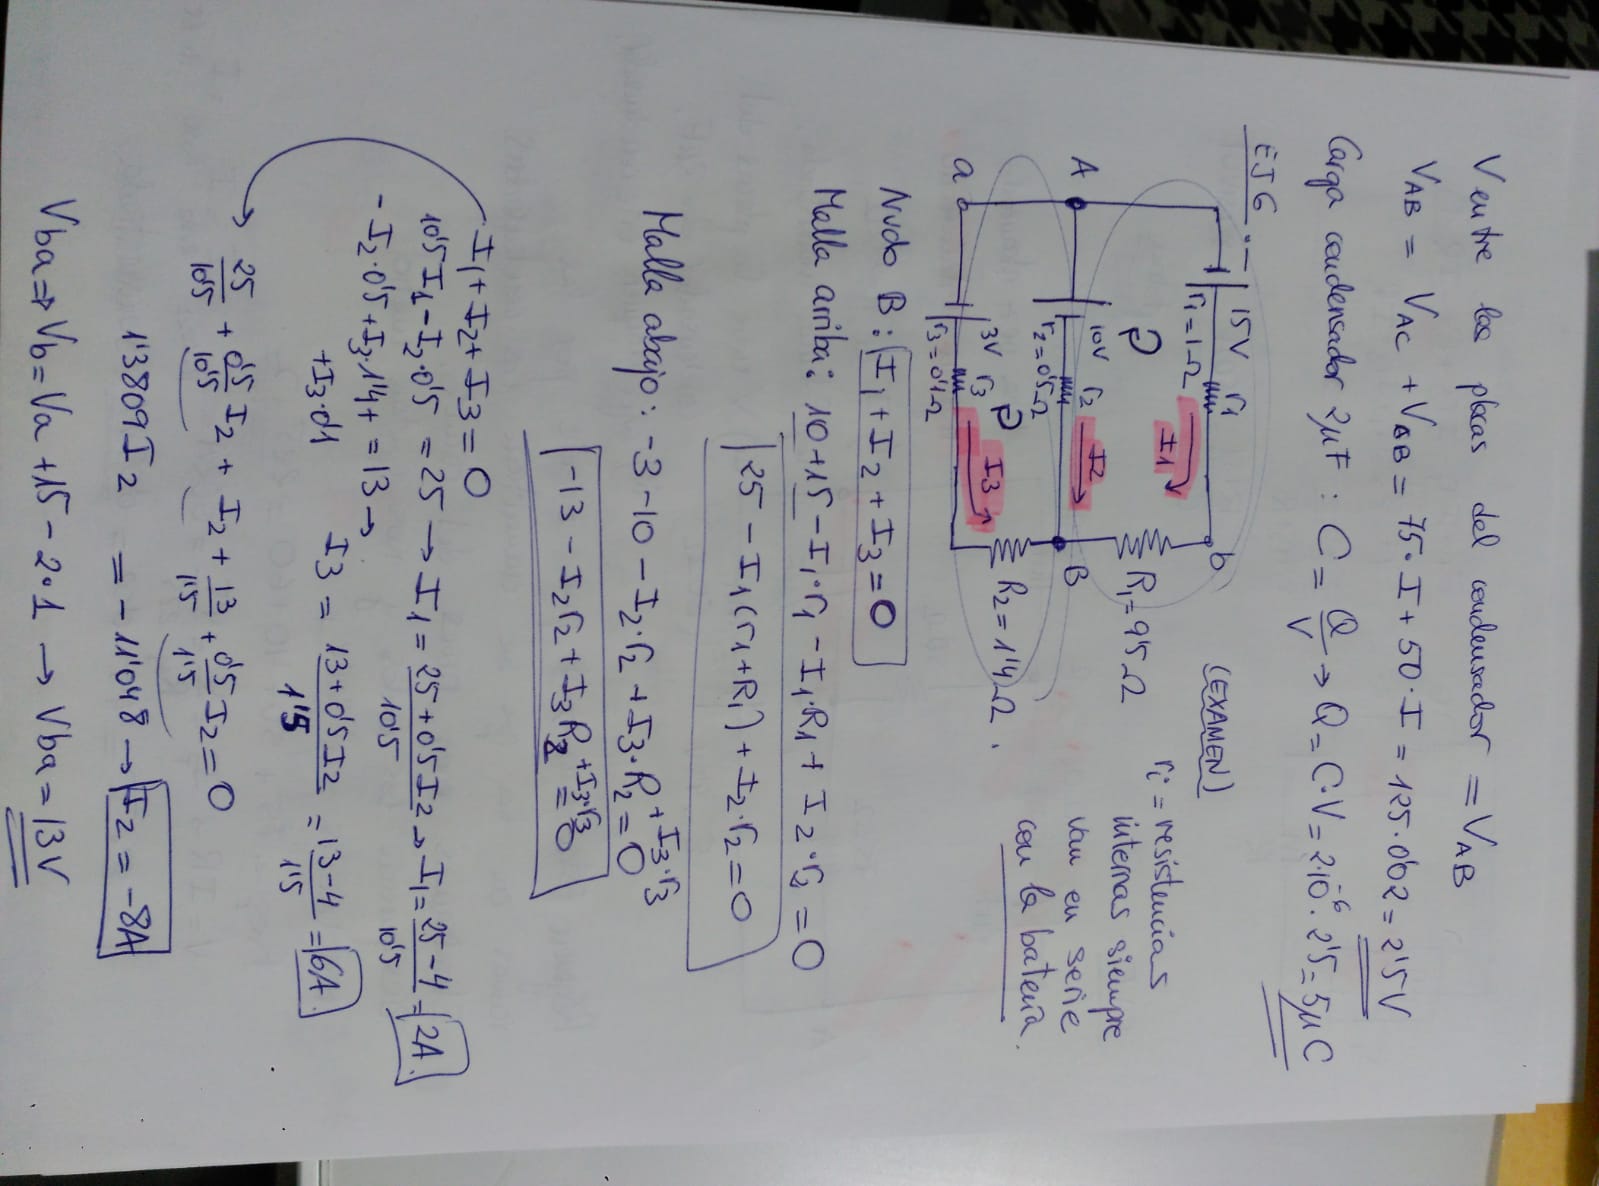 V entre las placas del condensador = VAB
VAB = VAC + VCB = 75·I + 50·I = 125·0'02 = 2'5V
Carga condensador 2μF : C = Q/V → Q = C·V = 2·10⁻⁶·2'5 = 5μC
EJ6.-
15V r1 b
r1=1Ω
I1
(EXAMEN)
R1=9'5Ω
ri = resistencias
internas siempre
van en serie
con la batería.
10V r2 I2
A B
r2=0'5Ω
R2=1'4Ω.
3V r3 I3
a
r3=0'1Ω
Nudo B: I1 + I2 + I3 = 0
Malla arriba: 10+15 - I1·r1 - I1·R1 + I2·r2 = 0
25 - I1(r1+R1) + I2·r2 = 0
Malla abajo: -3-10 - I2·r2 + I3·R2 + I3·r3 = 0
-13 - I2r2 + I3R2 + I3·r3 = 0
I1 + I2 + I3 = 0
10'5 I1 - I2·0'5 = 25 → I1 = (25+0'5I2)/10'5 → I1 = (25-4)/10'5 = 2A.
- I2·0'5 + I3·1'4 + = 13 →
+I3·0'1 I3 = (13+0'5I2)/1'5 = (13-4)/1'5 = 6A.
25/10'5 + 0'5/10'5 I2 + I2 + 13/1'5 + 0'5/1'5 I2 = 0
1'3809 I2 = -11'048 → I2 = -8A
Vba ⇒ Vb = Va + 15 - 2·1 → Vba = 13V